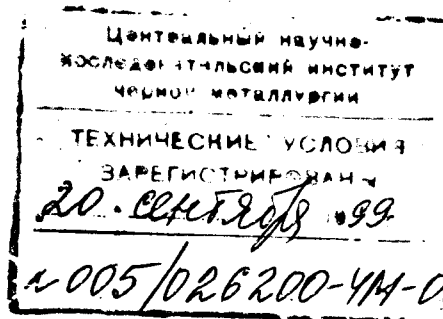 Центральный научно-
исследовательский институт
черной металлургии
ТЕХНИЧЕСКИЕ УСЛОВИЯ
ЗАРЕГИСТРИРОВАНЫ
20 · сентября 1999
№005/026200-ЧМ-0